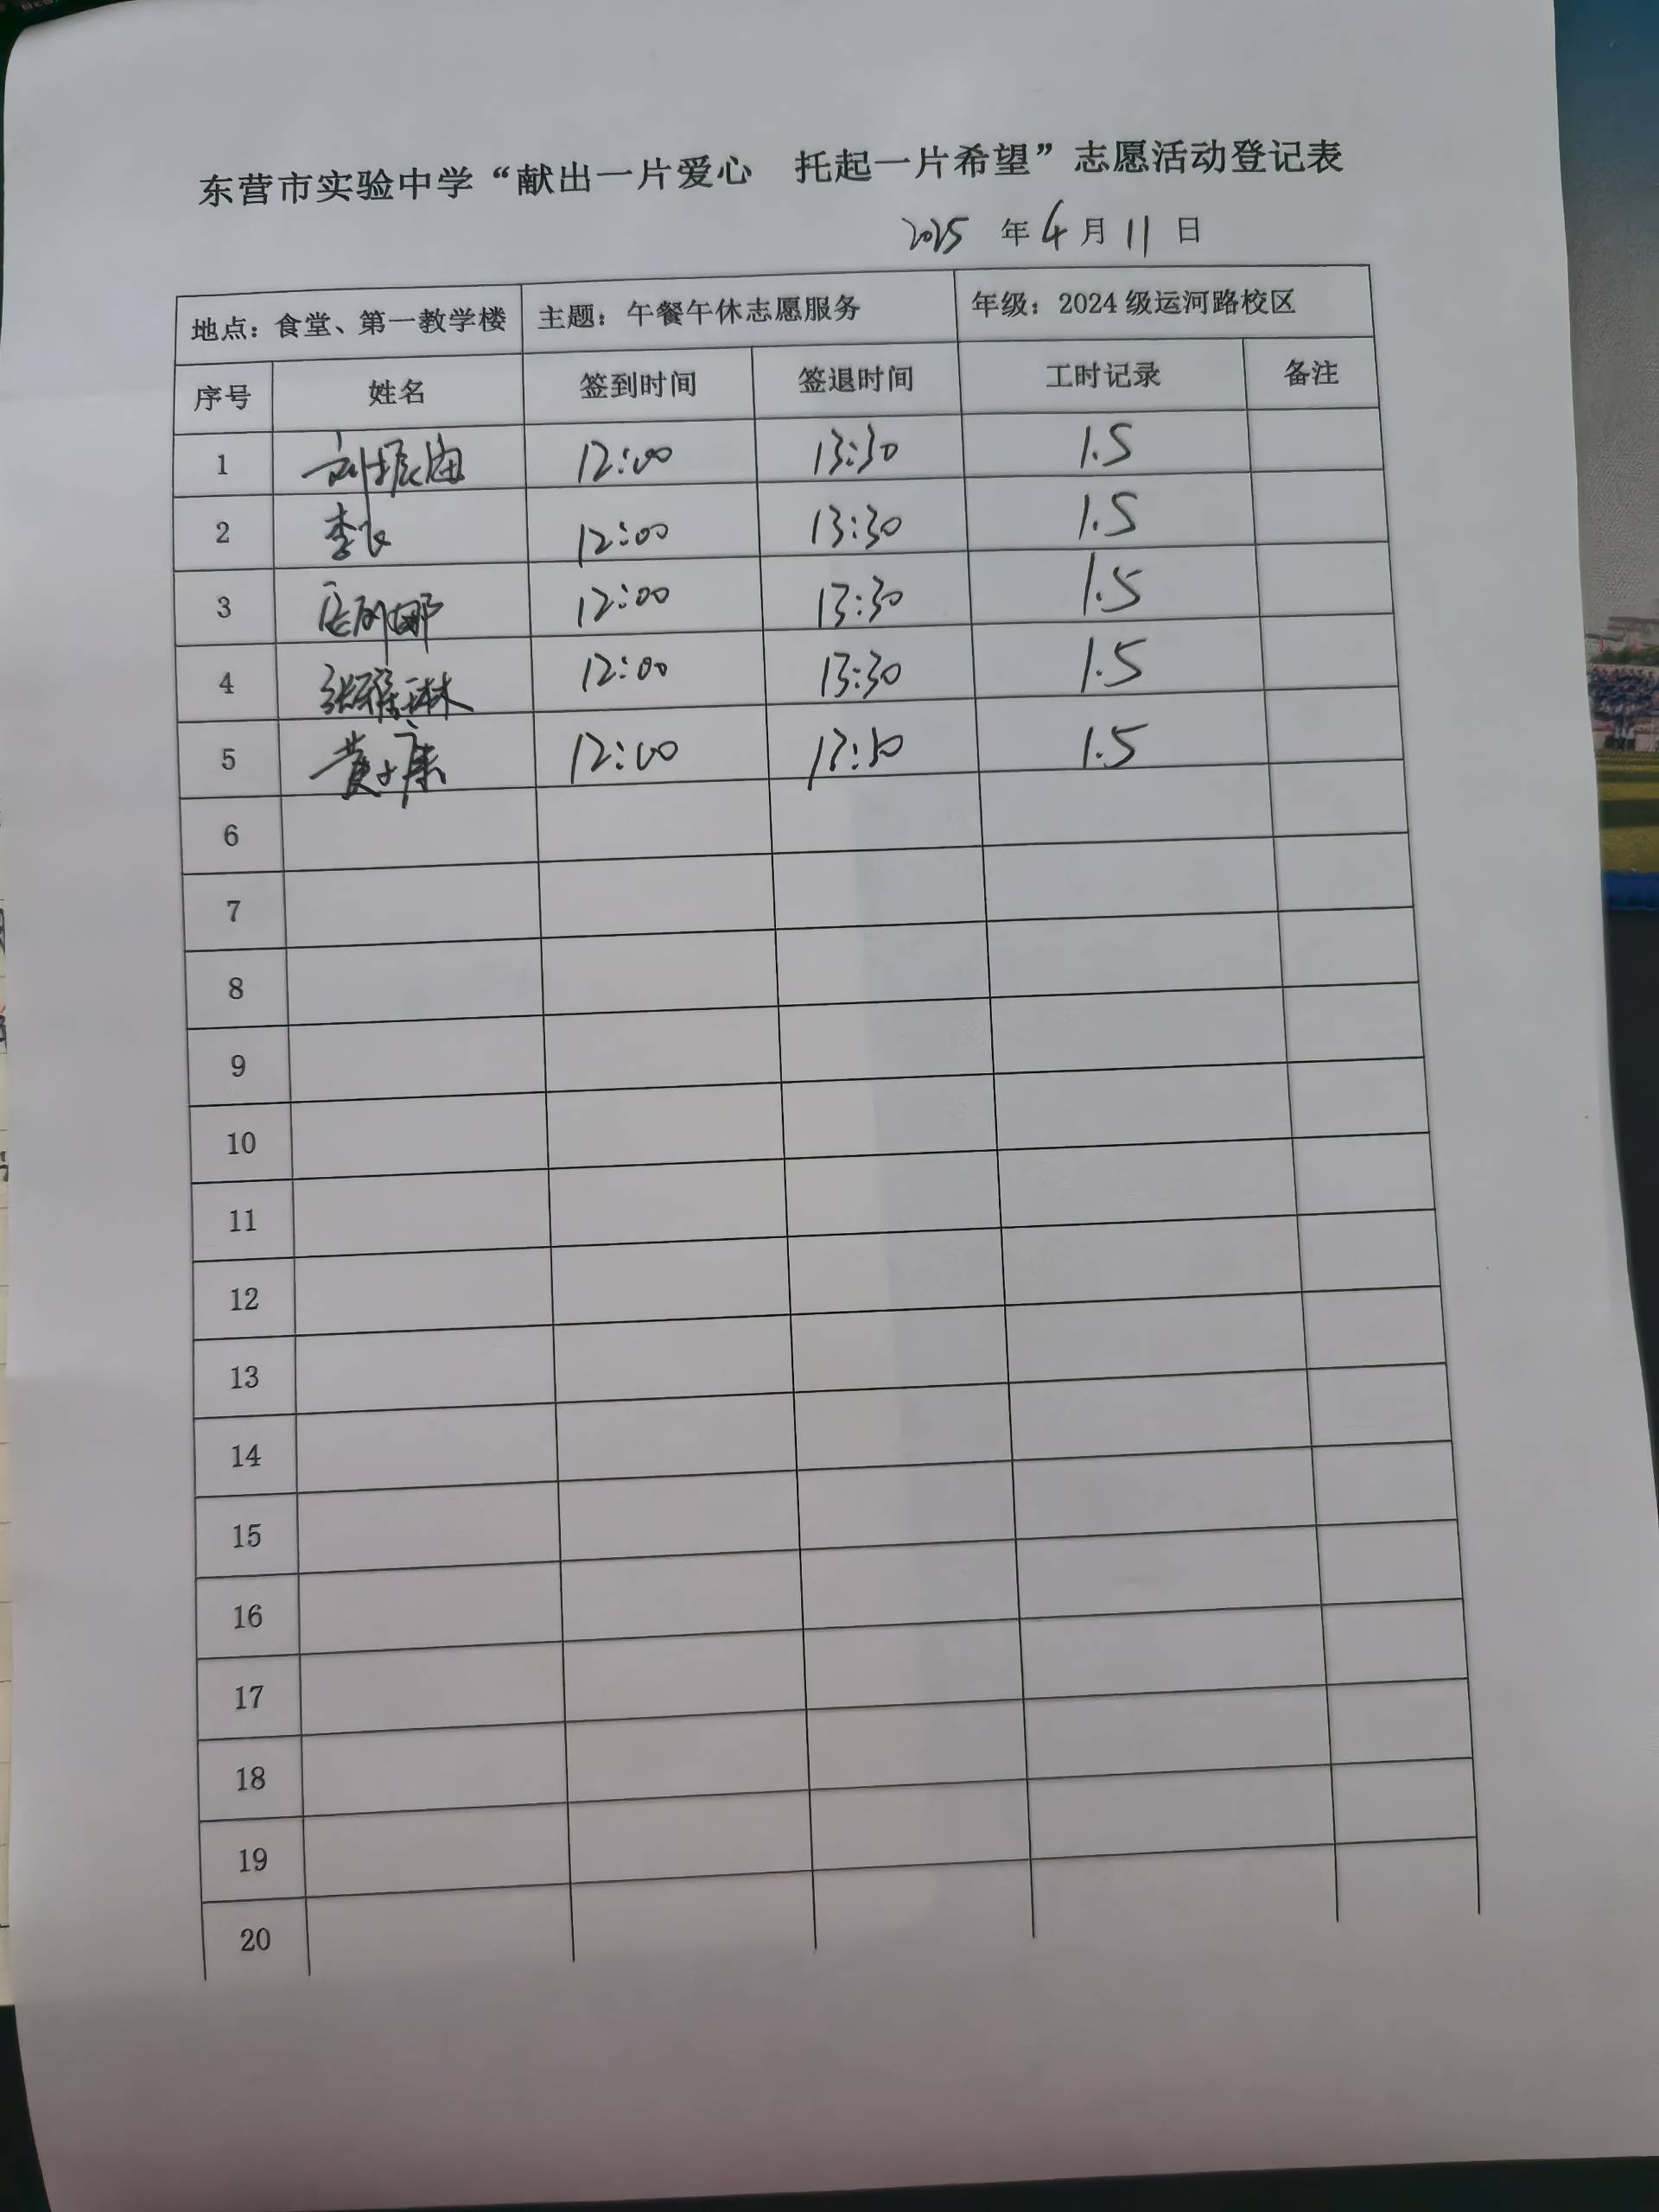 东营市实验中学“献出一片爱心 托起一片希望”志愿活动登记表
2025 年 4 月 11 日
地点：食堂、第一教学楼 主题：午餐午休志愿服务 年级：2024 级运河路校区
序号 姓名 签到时间 签退时间 工时记录 备注
1 刘振 12:00 13:30 1.5
2 李 12:00 13:30 1.5
3 娜 12:00 13:30 1.5
4 张雅琳 12:00 13:30 1.5
5 黄子康 12:00 13:30 1.5
6
7
8
9
10
11
12
13
14
15
16
17
18
19
20